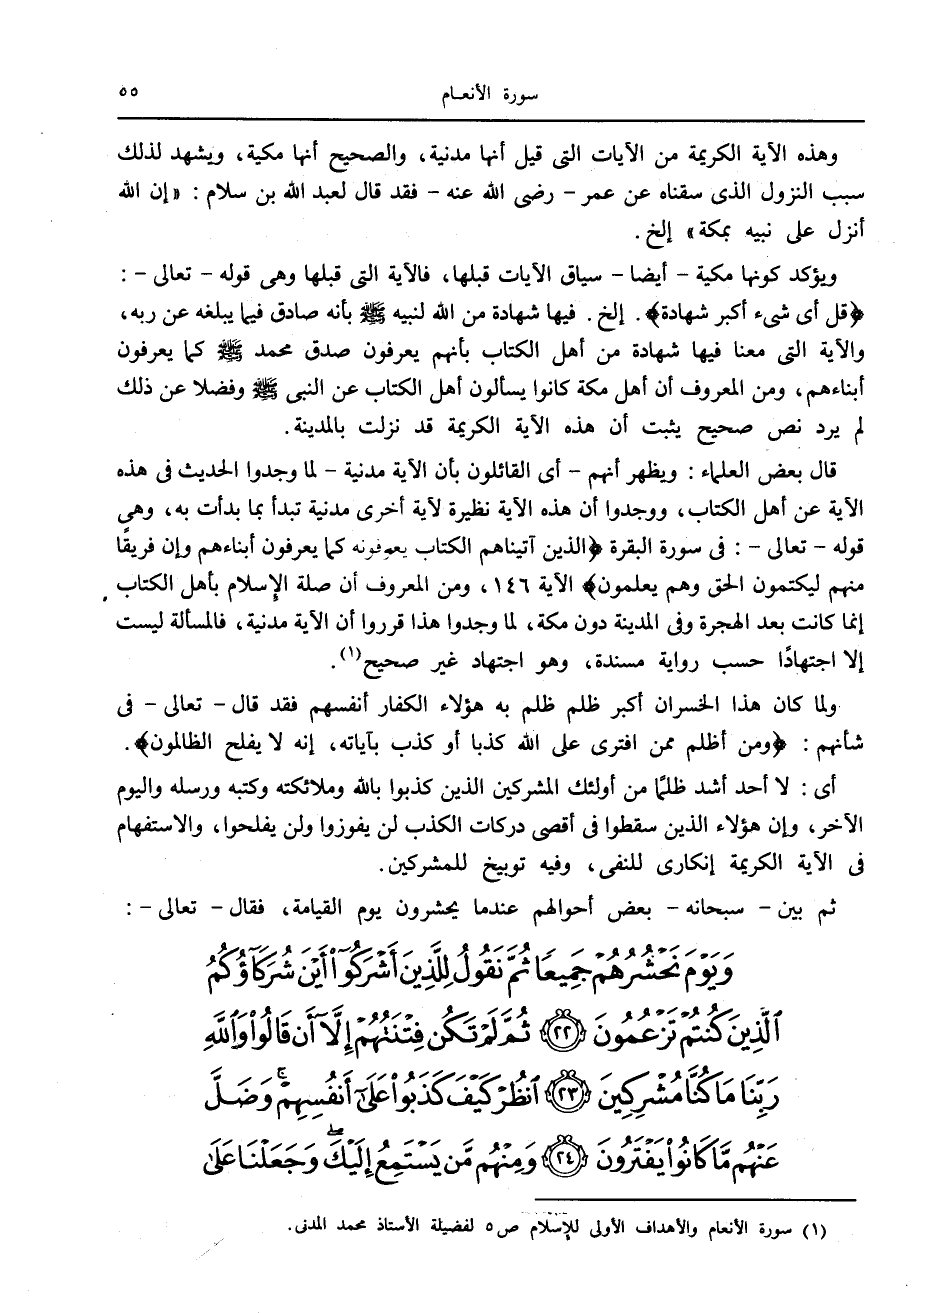 سورة الأنعـام ٥٥
وهذه الآية الكريمة من الآيات التى قيل أنها مدنية، والصحيح أنها مكية، ويشهد لذلك
سبب النزول الذى سقناه عن عمر - رضى الله عنه - فقد قال لعبد الله بن سلام : «إن الله
أنزل على نبيه بمكة» إلخ.
ويؤكد كونها مكية - أيضا - سياق الآيات قبلها، فالآية التى قبلها وهى قوله - تعالى - :
﴿قل أى شىء أكبر شهادة﴾. إلخ. فيها شهادة من الله لنبيه ﷺ بأنه صادق فيما يبلغه عن ربه،
والآية التى معنا فيها شهادة من أهل الكتاب بأنهم يعرفون صدق محمد ﷺ كما يعرفون
أبناءهم، ومن المعروف أن أهل مكة كانوا يسألون أهل الكتاب عن النبى ﷺ وفضلا عن ذلك
لم يرد نص صحيح يثبت أن هذه الآية الكريمة قد نزلت بالمدينة.
قال بعض العلماء : ويظهر أنهم - أى القائلون بأن الآية مدنية - لما وجدوا الحديث فى هذه
الآية عن أهل الكتاب، ووجدوا أن هذه الآية نظيرة لآية أخرى مدنية تبدأ بما بدأت به، وهى
قوله - تعالى - : فى سورة البقرة ﴿الذين آتيناهم الكتاب يعرفونه كما يعرفون أبناءهم وإن فريقًا
منهم ليكتمون الحق وهم يعلمون﴾ الآية ١٤٦، ومن المعروف أن صلة الإسلام بأهل الكتاب
إنما كانت بعد الهجرة وفى المدينة دون مكة، لما وجدوا هذا قرروا أن الآية مدنية، فالمسألة ليست
إلا اجتهادًا حسب رواية مسندة، وهو اجتهاد غير صحيح(١).
ولما كان هذا الخسران أكبر ظلم ظلم به هؤلاء الكفار أنفسهم فقد قال - تعالى - فى
شأنهم : ﴿ومن أظلم ممن افترى على الله كذبا أو كذب بآياته، إنه لا يفلح الظالمون﴾.
أى : لا أحد أشد ظلمًا من أولئك المشركين الذين كذبوا بالله وملائكته وكتبه ورسله واليوم
الآخر، وإن هؤلاء الذين سقطوا فى أقصى دركات الكذب لن يفوزوا ولن يفلحوا، والاستفهام
فى الآية الكريمة إنكارى للنفى، وفيه توبيخ للمشركين.
ثم بين - سبحانه - بعض أحوالهم عندما يحشرون يوم القيامة، فقال - تعالى - :
وَيَوْمَ نَحْشُرُهُمْ جَمِيعًا ثُمَّ نَقُولُ لِلَّذِينَ أَشْرَكُوٓا۟ أَيْنَ شُرَكَآؤُكُمُ
ٱلَّذِينَ كُنتُمْ تَزْعُمُونَ ٢٢ ثُمَّ لَمْ تَكُن فِتْنَتُهُمْ إِلَّآ أَن قَالُوا۟ وَٱللَّهِ
رَبِّنَا مَا كُنَّا مُشْرِكِينَ ٢٣ ٱنظُرْ كَيْفَ كَذَبُوا۟ عَلَىٰٓ أَنفُسِهِمْ ۚ وَضَلَّ
عَنْهُم مَّا كَانُوا۟ يَفْتَرُونَ ٢٤ وَمِنْهُم مَّن يَسْتَمِعُ إِلَيْكَ ۖ وَجَعَلْنَا عَلَىٰ
(١) سورة الأنعام والأهداف الأولى للإسلام ص٥ لفضيلة الأستاذ محمد المدنى.